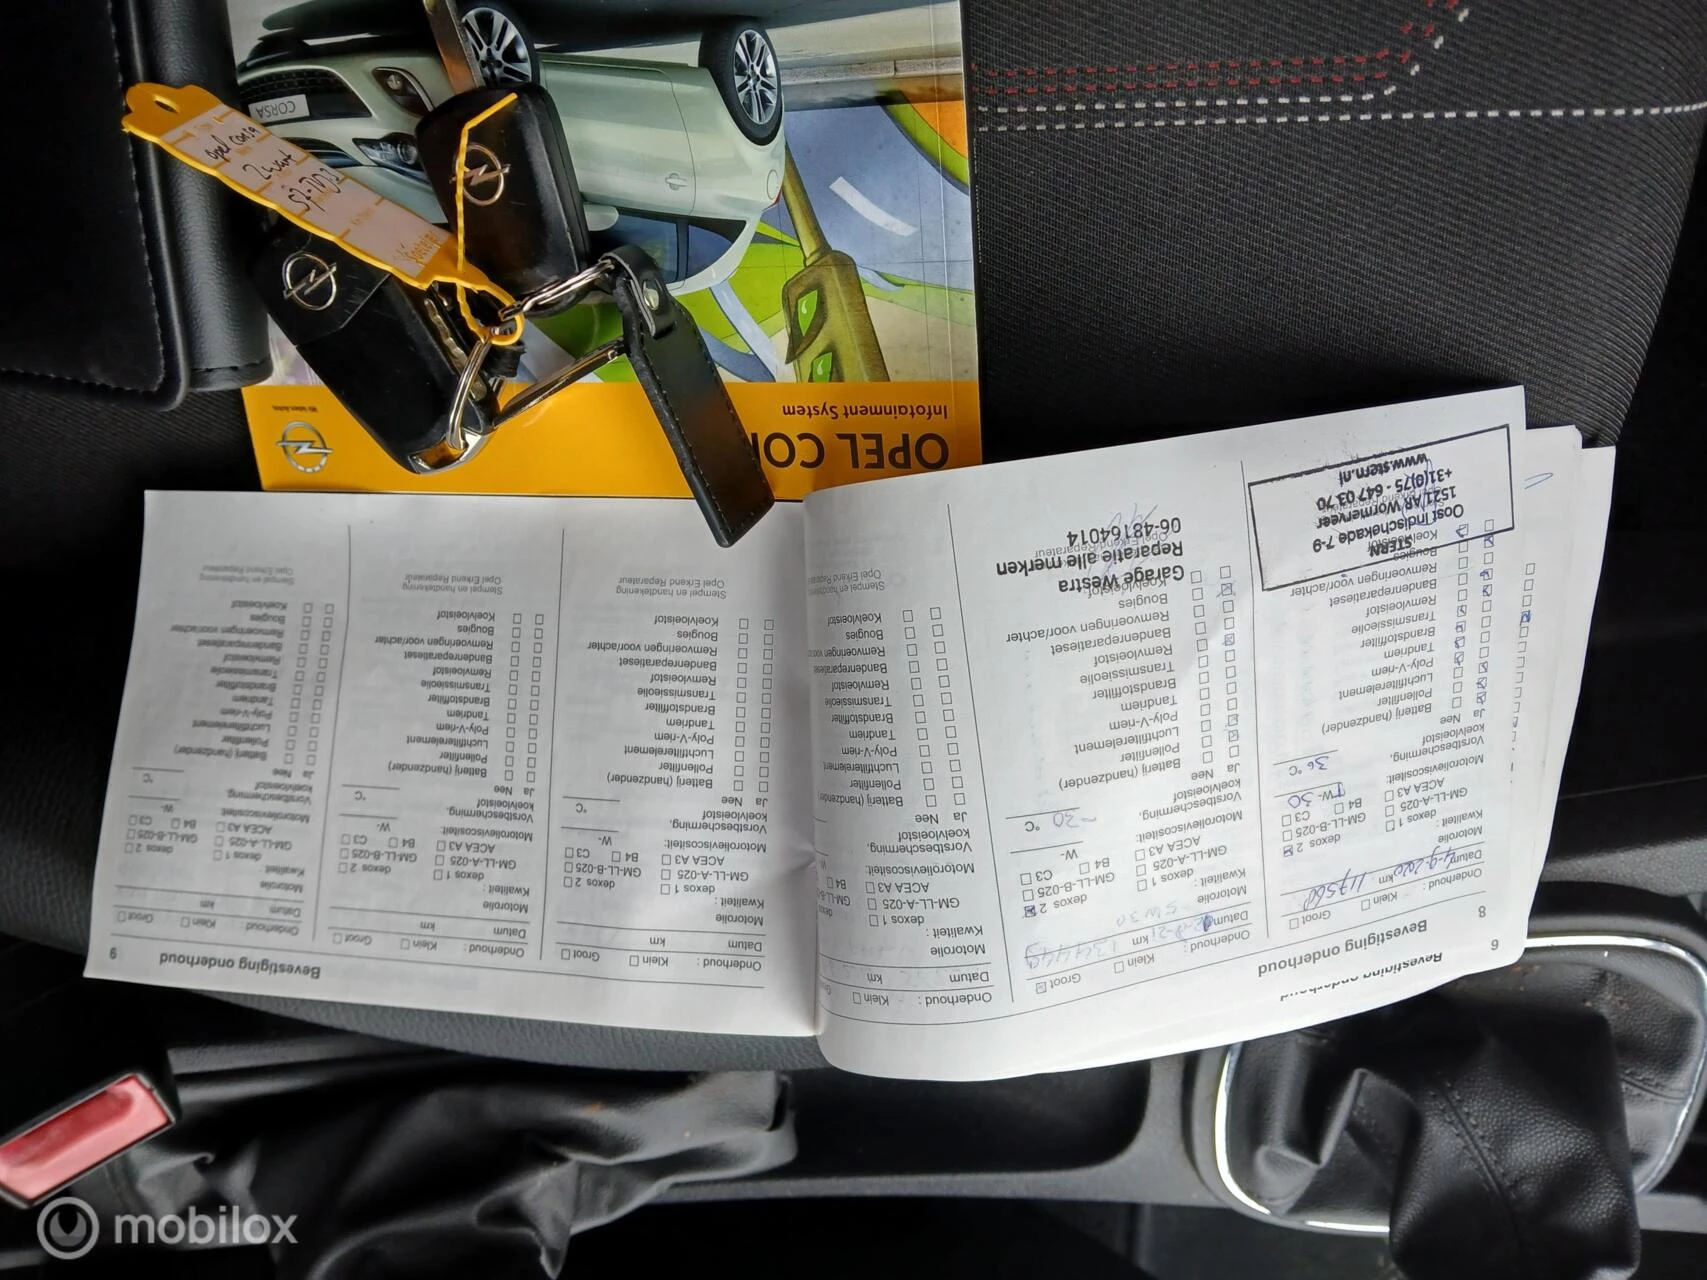 CORSA
opel corsa
zwart
Wir leben Autos.
OPEL CO
Infotainment System
Bevestiging onderhoud
8
Onderhoud :
Klein
Groot
Datum
km 117560
Motorolie
Kwaliteit :
dexos 1
dexos 2
GM-LL-A-025
GM-LL-B-025
ACEA A3
B4
C3
Motorolieviscositeit:
W- 30
Vorstbescherming,
koelvloeistof
°C
Ja Nee
Batterij (handzender)
Pollenfilter
Luchtfilterelement
Poly-V-riem
Tandriem
Brandstoffilter
Transmissieolie
Remvloeistof
Bandenreparatieset
Remvoeringen voor/achter
Bougies
Koelvloeistof
STERN
Oost Indischekade 7-9
1521 AR Wormerveer
+31(0)75 - 647 03 70
www.stern.nl
Onderhoud :
Klein
Groot
Datum
km
Motorolie 5W30
Kwaliteit :
dexos 1
dexos 2
GM-LL-A-025
GM-LL-B-025
ACEA A3
B4
C3
Motorolieviscositeit:
W-
Vorstbescherming,
koelvloeistof
-30 °C
Ja Nee
Batterij (handzender)
Pollenfilter
Luchtfilterelement
Poly-V-riem
Tandriem
Brandstoffilter
Transmissieolie
Remvloeistof
Bandenreparatieset
Remvoeringen voor/achter
Bougies
Koelvloeistof
Garage Westra
Reparatie alle merken
06-48164014
Onderhoud :
Klein
Datum
km
Motorolie
Kwaliteit :
dexos 1
GM-LL-A-025
GM-LL-B-025
ACEA A3
B4
Motorolieviscositeit:
W
Vorstbescherming,
koelvloeistof
Ja Nee
Batterij (handzender)
Pollenfilter
Luchtfilterelement
Poly-V-riem
Tandriem
Brandstoffilter
Transmissieolie
Remvloeistof
Bandenreparatieset
Remvoeringen
Bougies
Koelvloeistof
Stempel en handtekening
Opel Erkend Reparateur
Bevestiging onderhoud
9
Onderhoud :
Klein
Groot
Datum
km
Motorolie
Kwaliteit :
dexos 1
dexos 2
GM-LL-A-025
GM-LL-B-025
ACEA A3
B4
C3
Motorolieviscositeit:
W-
Vorstbescherming,
koelvloeistof
°C
Ja Nee
Batterij (handzender)
Pollenfilter
Luchtfilterelement
Poly-V-riem
Tandriem
Brandstoffilter
Transmissieolie
Remvloeistof
Bandenreparatieset
Remvoeringen voor/achter
Bougies
Koelvloeistof
Stempel en handtekening
Opel Erkend Reparateur
Onderhoud :
Klein
Groot
Datum
km
Motorolie
Kwaliteit :
dexos 1
dexos 2
GM-LL-A-025
GM-LL-B-025
ACEA A3
B4
C3
Motorolieviscositeit:
W-
Vorstbescherming,
koelvloeistof
°C
Ja Nee
Batterij (handzender)
Pollenfilter
Luchtfilterelement
Poly-V-riem
Tandriem
Brandstoffilter
Transmissieolie
Remvloeistof
Bandenreparatieset
Remvoeringen voor/achter
Bougies
Koelvloeistof
Stempel en handtekening
Opel Erkend Reparateur
Onderhoud :
Klein
Groot
Datum
km
Motorolie
Kwaliteit
dexos 1
dexos 2
GM-LL-A-025
GM-LL-B-025
ACEA A3
B4
C3
Motorolieviscositeit:
W-
Vorstbescherming,
koelvloeistof
°C
Ja Nee
Batterij (handzender)
Pollenfilter
Luchtfilterelement
Poly-V-riem
Tandriem
Brandstoffilter
Transmissieolie
Remvloeistof
Bandenreparatieset
Remvoeringen voor/achter
Bougies
Koelvloeistof
Stempel en handtekening
Opel Erkend Reparateur
6
Bevestiging onderhoud
mobilox